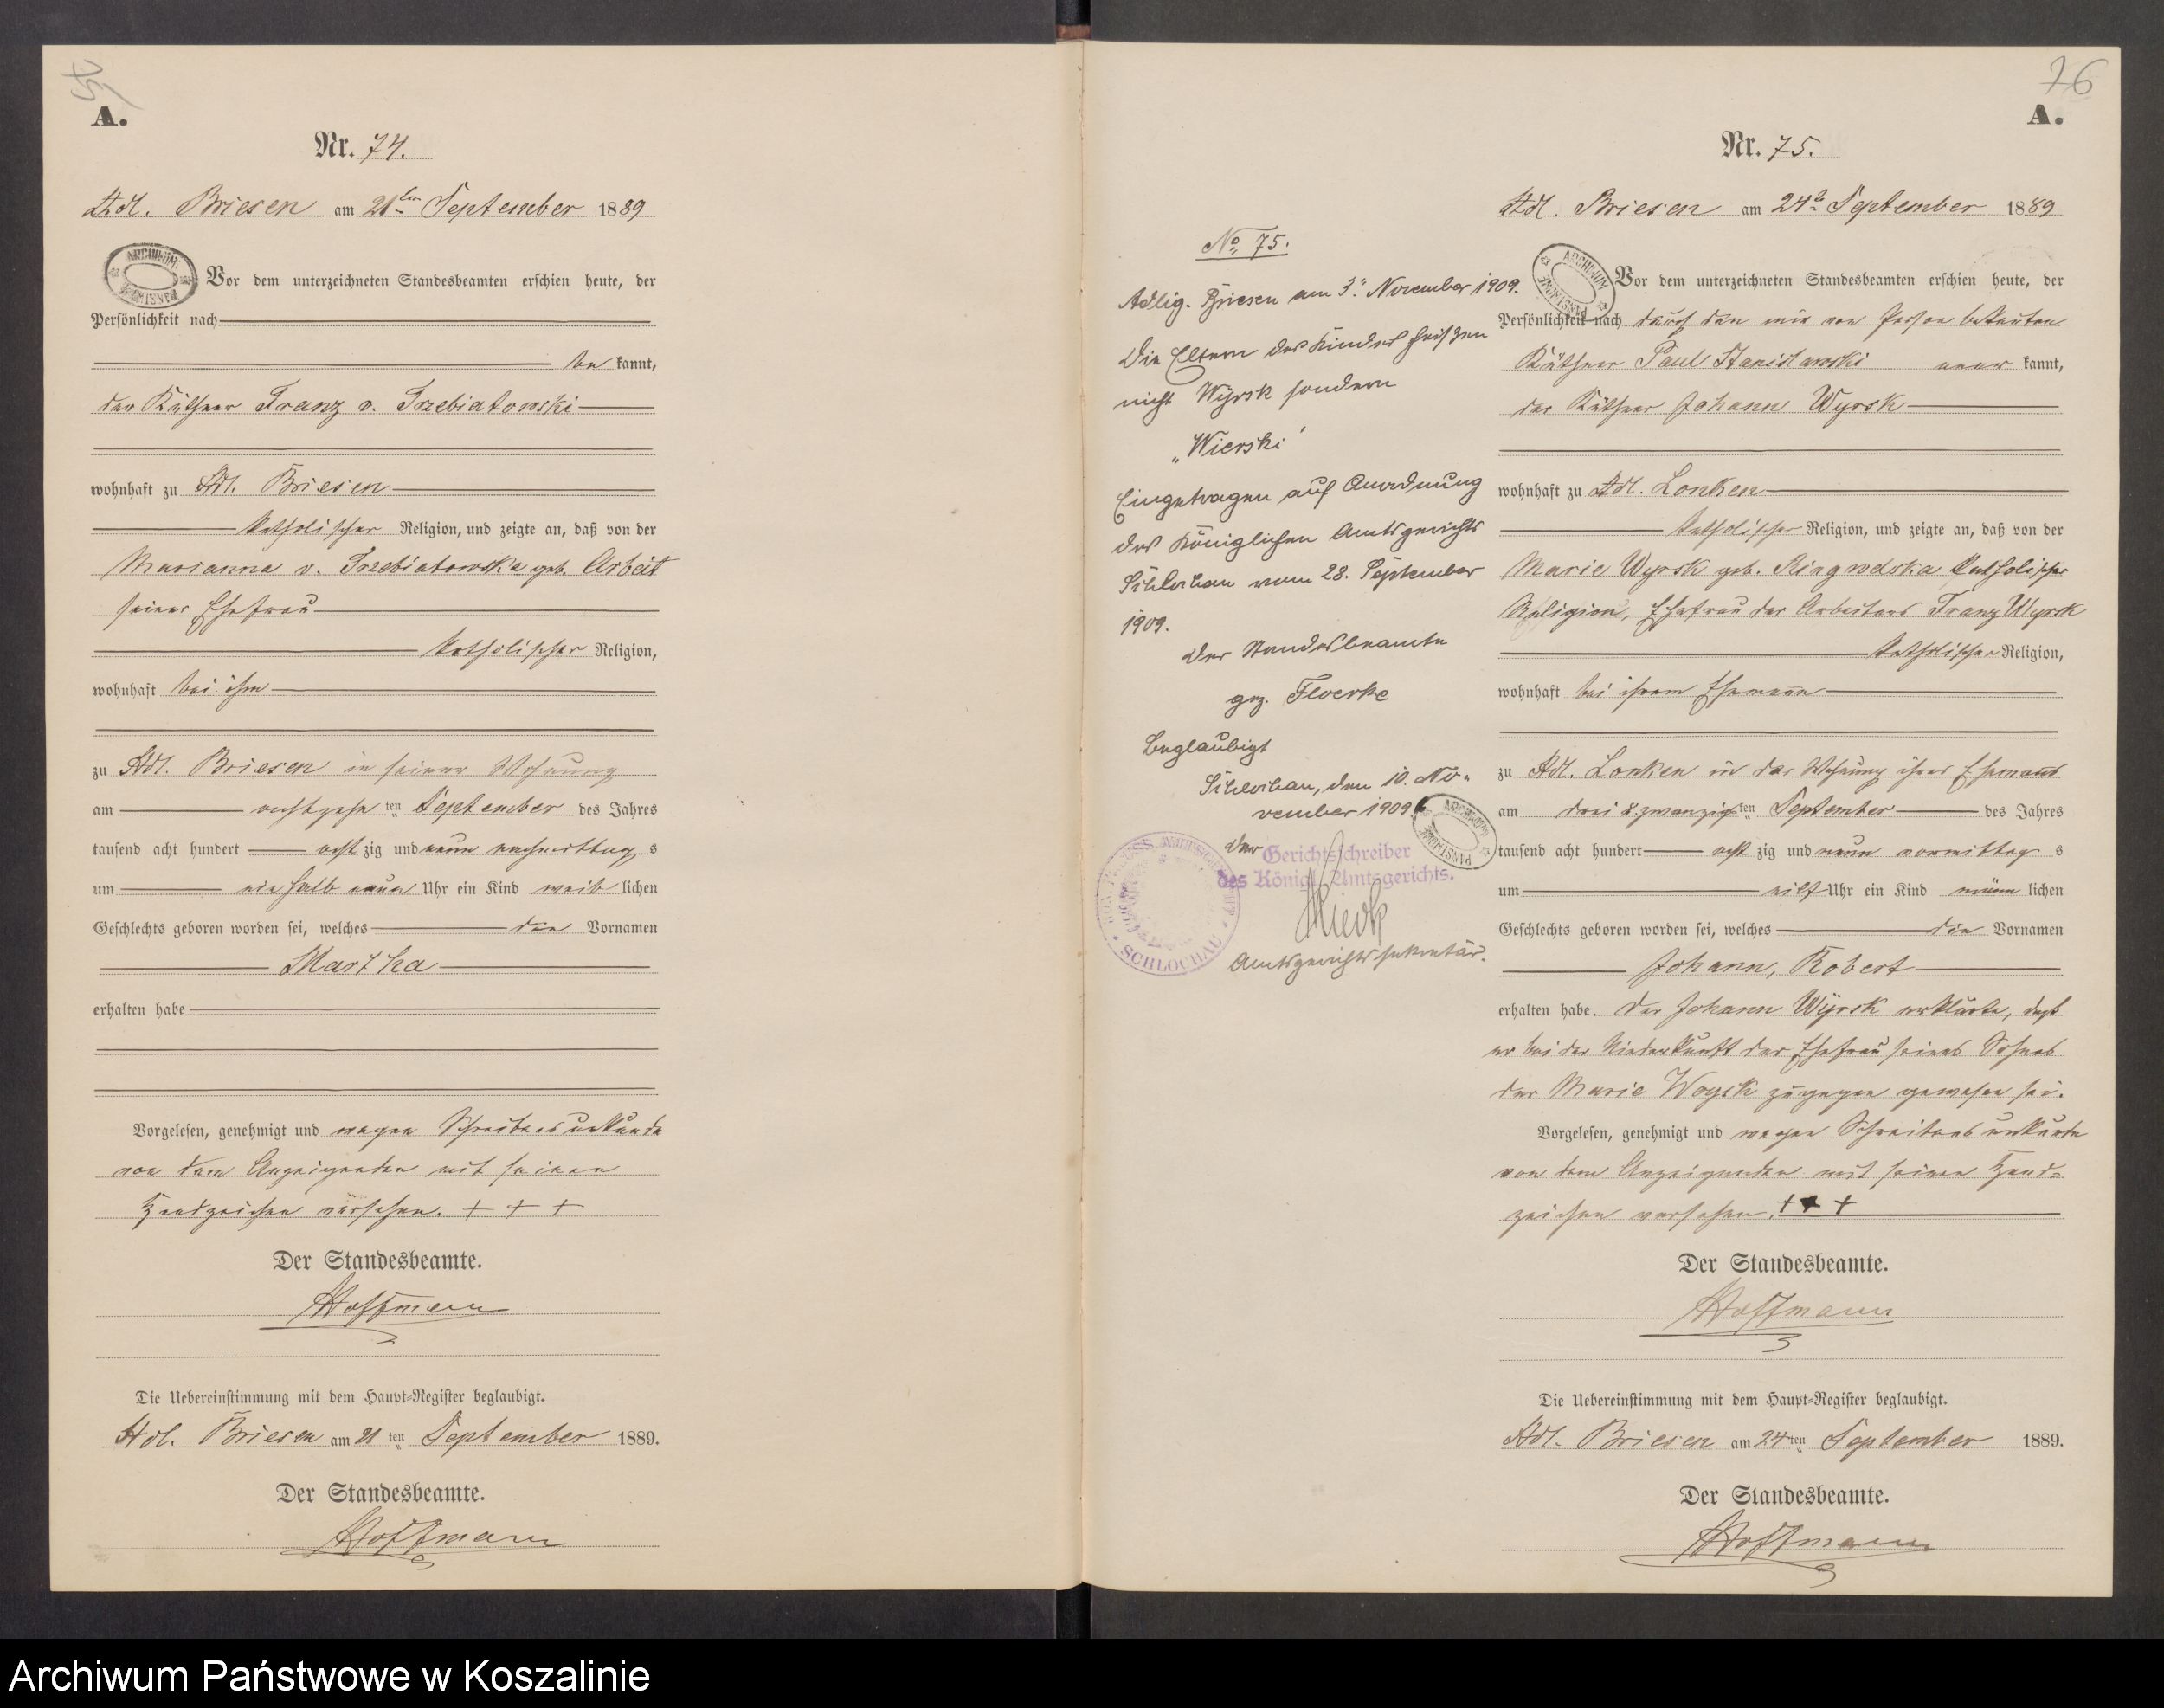 A.
Nr. 74.
Adl. Briesen am 21ten September 1889
Vor dem unterzeichneten Standesbeamten erschien heute, der
Persönlichkeit nach
be kannt,
der Käthner Franz v. Trzebiatowski
wohnhaft zu Adl. Briesen
katholischer Religion, und zeigte an, daß von der
Marianna v. Trzebiatowska geb. Arbeit
seiner Ehefrau
katholischer Religion,
wohnhaft bei ihm
zu Adl. Briesen in seiner Wohnung
am achtzehn ten September des Jahres
tausend acht hundert acht zig und neun nachmittag s
um halb neun Uhr ein Kind weib lichen
Geschlechts geboren worden sei, welches den Vornamen
Martha
erhalten habe
Vorgelesen, genehmigt und wegen Schreibensunkunde
von dem Anzeigenden mit seinen
Handzeichen versehen. + + +
Der Standesbeamte.
Hoffmann
Die Uebereinstimmung mit dem Haupt-Register beglaubigt.
Adl. Briesen am 21 ten September 1889.
Der Standesbeamte.
Hoffmann
No 75.
Adlig. Briesen am 3. November 1909.
Die Eltern des Kindes heißen
nicht Wyrsk sondern
„Wierski"
Eingetragen auf Anordnung
des Königlichen Amtsgerichts
Schlochau vom 28. September
1909.
Der Standesbeamte
gez. Floerke
Beglaubigt
Schlochau, den 10. No-
vember 1909
Der Gerichtsschreiber
des Königl. Amtsgerichts.
Amtsgerichtssekretär.
SCHLOCHAU
76
A.
Nr. 75.
Adl. Briesen am 24ten September 1889
Vor dem unterzeichneten Standesbeamten erschien heute, der
Persönlichkeit nach durch den mir von Person bekannten
Käthner Paul Stanislawski aner kannt,
der Käthner Johann Wyrsk
wohnhaft zu Adl. Lonken
katholischer Religion, und zeigte an, daß von der
Marie Wyrsk geb. katholischer
Religion, Ehefrau des Arbeiters Franz Wyrsk
katholischer Religion,
wohnhaft bei ihrem Ehemann
zu Adl. Lonken in der Wohnung ihres Ehemanns
am drei & zwanzig ten September des Jahres
tausend acht hundert acht zig und neun vormittag s
um elf Uhr ein Kind männ lichen
Geschlechts geboren worden sei, welches die Vornamen
Johann, Robert
erhalten habe. Der Johann Wyrsk erklärte, daß
er bei der Niederkunft der Ehefrau seines Sohnes
der Marie zugegen gewesen sei.
Vorgelesen, genehmigt und wegen Schreibensunkunde
von dem Anzeigenden mit seinen Hand-
zeichen versehen. + + +
Der Standesbeamte.
Hoffmann
Die Uebereinstimmung mit dem Haupt-Register beglaubigt.
Adl. Briesen am 24 ten September 1889.
Der Standesbeamte.
Hoffmann
Archiwum Państwowe w Koszalinie